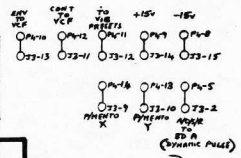 ENV TO VCF
CONT TO VCF
TO VIB PRESETS
+15V
-15V
P4-10 P4-12 P4-11 P4-9 P4-8
J3-13 J3-11 J3-12 J3-14 J3-15
P4-14 P4-13 P4-5
J3-9 J3-10 J3-2
PYMENTO X
PYMENTO Y
TO BD A
(DYNAMIC PULSE)